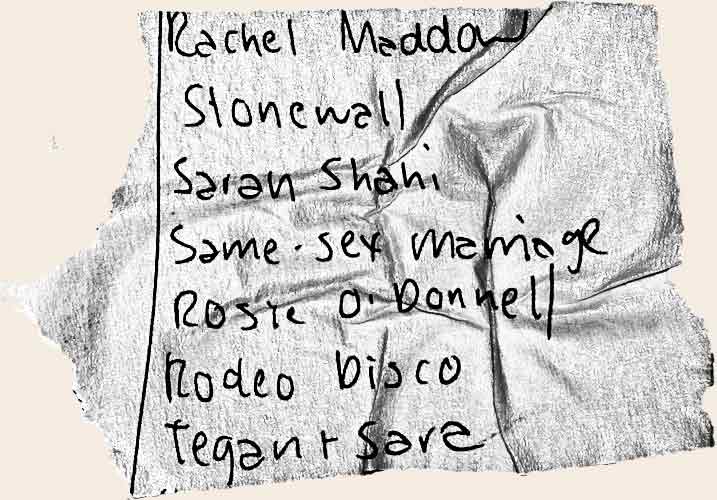 Rachel Maddow
Stonewall
Saran Shahi
Same-sex marriage
Rosie O'Donnell
Rodeo Disco
Tegan + Sara